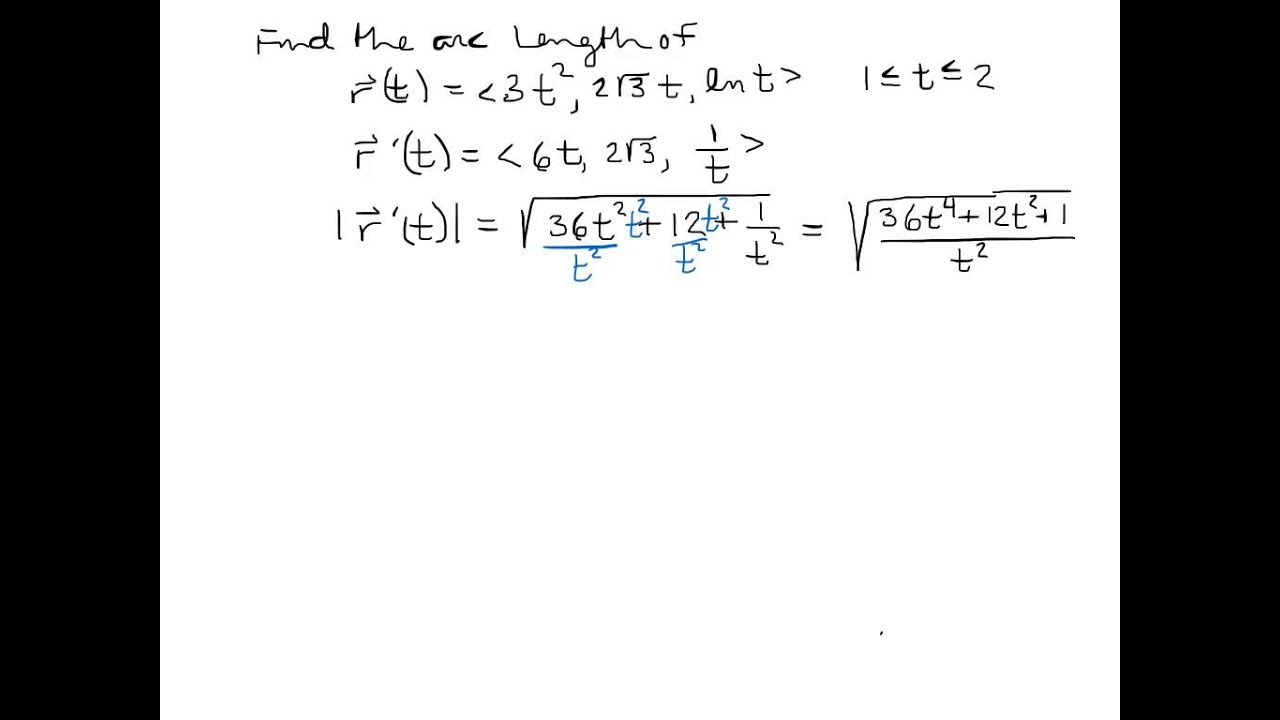 Find the arc length of
r⃗(t) = <3t², 2√3 t, ln t> 1 ≤ t ≤ 2
r⃗'(t) = <6t, 2√3, 1/t>
|r⃗'(t)| = √(36t²t²/t² + 12t²/t² + 1/t²) = √((36t⁴+12t²+1)/t²)